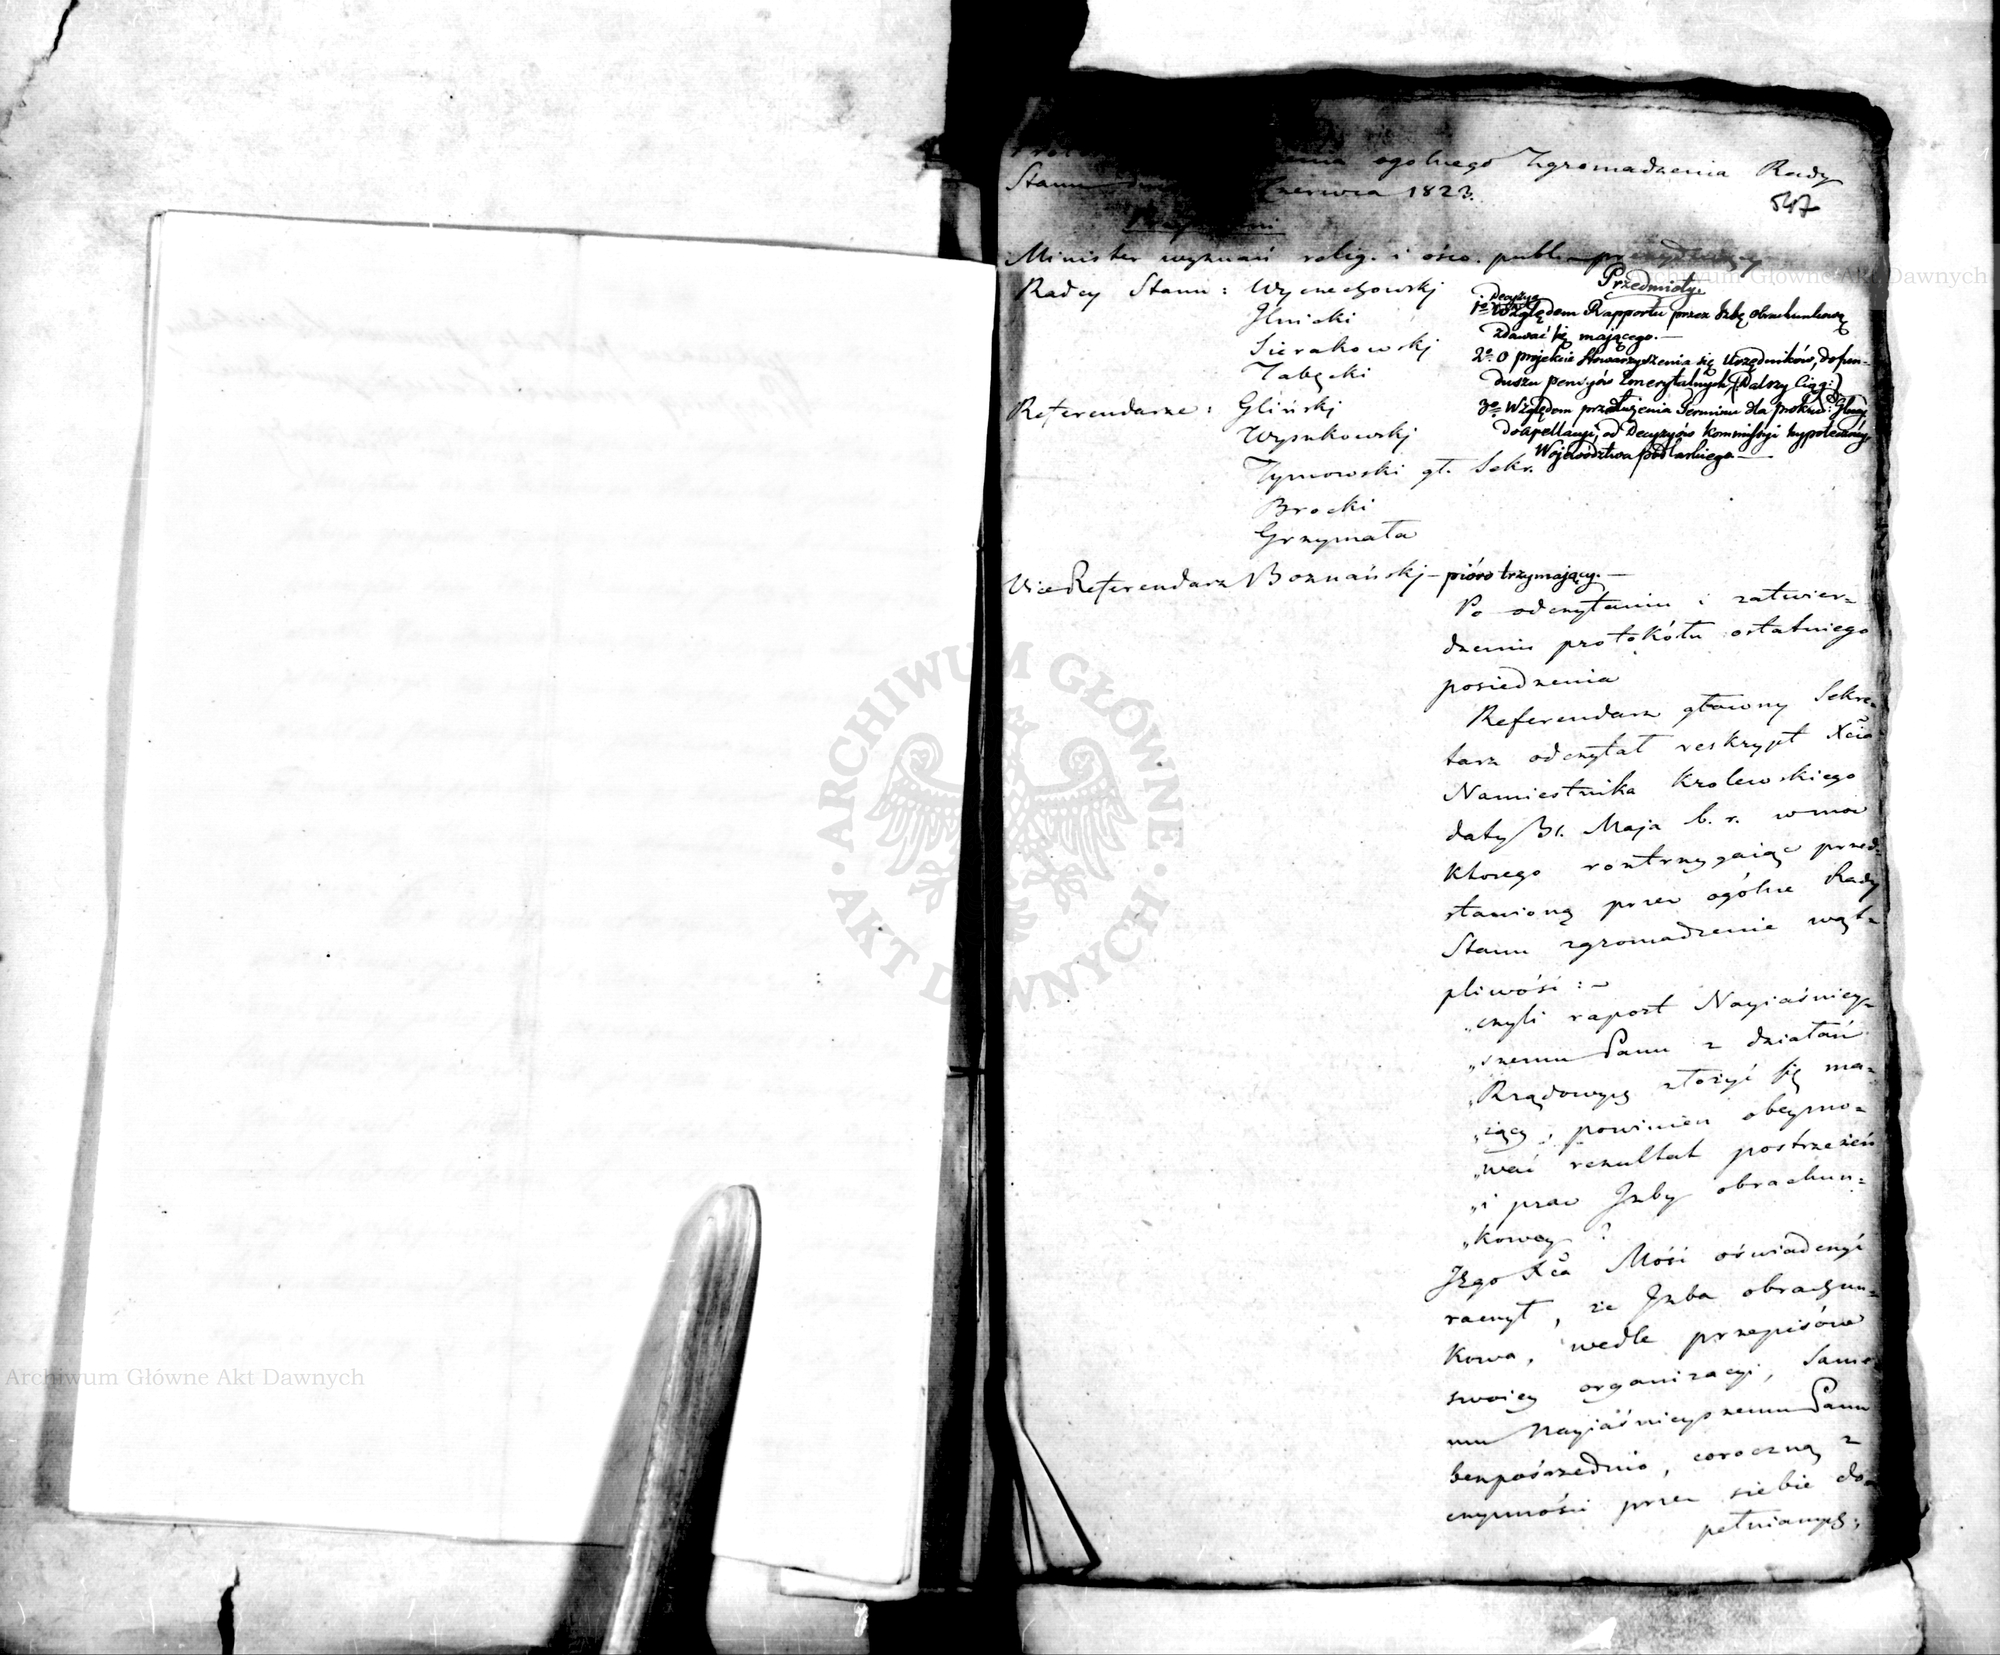 ogolnego Zgromadzenia Rady
Stanu Czerwca 1823.
547
Minister wyznań relig. i ośw. publ. prezydujący
Radcy Stanu: Wyczechowskj
Ilnicki
Sierakowskj
Zabęcki
Referendarze: Glińskj
Wysukowskj
Tymowski gł. Sekr.
Brocki
Grzymała
Vice Referendarz Boznańskj – pióro trzymający. —
Przedmioty.
Decyzya
1o Względem Rapportu przez Izbę obrachunkową
zdawać się mającego. —
2o O projekcie Stowarzyszenia się Urzędników, do fun-
duszu pensyów Emerytalnych (Dalszy Ciąg:)
3o Względem przedłużenia Terminu dla prokur:
do apellacyi, od Decyzyów Kommissyi hypoteczney
Województwa podlaskiego —
Po odczytaniu i zatwier-
dzeniu protokółu ostatniego
posiedzenia
Referendarz głowny Sekre-
tarz odczytał reskrypt Xcia
Namiestnika Krolewskiego
daty 31. Maja b. r. w moc
ktorego roztrzygaiąc przed-
stawioną przez ogólne Rady
Stanu zgromadzenie wąt-
pliwość: ~
„czyli raport Nayiaśniey-
„szemu Panu z działań
„Rządowych złożyć się ma-
„iący, powinien obeymo-
„wać rezultat postrzeżeń
„i prac Izby obrachun-
„kowey?
Jego Xca Mość oświadczyć
raczył, że Izba obrachun-
kowa, wedle przepisów
swoiey organizacyi, same-
mu Nayiaśnieyszemu Panu
bezpośrednio, coroczną z
czynności przez siebie do-
pełnianych,
Archiwum Główne Akt Dawnych
Archiwum Główne Akt Dawnych
ARCHIWUM GŁÓWNE · AKT DAWNYCH ·